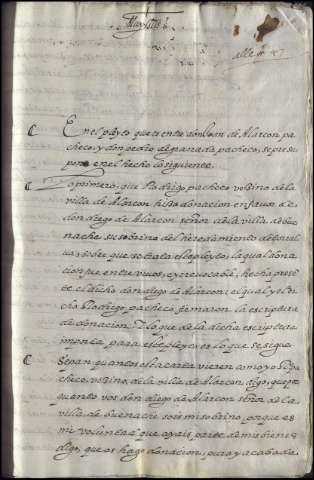 En el pleyto que es entre don Juan de Alarcon pa
checo, y don pedro de granada pacheco, se presu
pone en el hecho lo siguiente.
Lo primero, que Rodrigo pacheco vezino de la
villa de Alarcon hizo donacion en fauor de
don diego de Alarcon señor de la villa de bue
nache su sobrino del heredamiento de
sobre que se trata este pleyto, la qual dona
cion fue entre viuos, e yrreuocable, hecha presẽ
te el dicho don diego de Alarcon: el qual y el di
cho Rodrigo pacheco firmaron la escriptura
de donacion. Y lo que de la dicha escriptura
importa para este pleyto es lo que se sigue.
Sepan quantos esta carta vieren como yo Rº pa
checo, vezino de la villa de Alarcon, digo, que por
quanto vos don diego de Alarcon señor de la
villa de buenache sois mi sobrino, porque es
mi voluntad que ayais parte de mis bienes
digo, que os hago donacion, pura y acabada